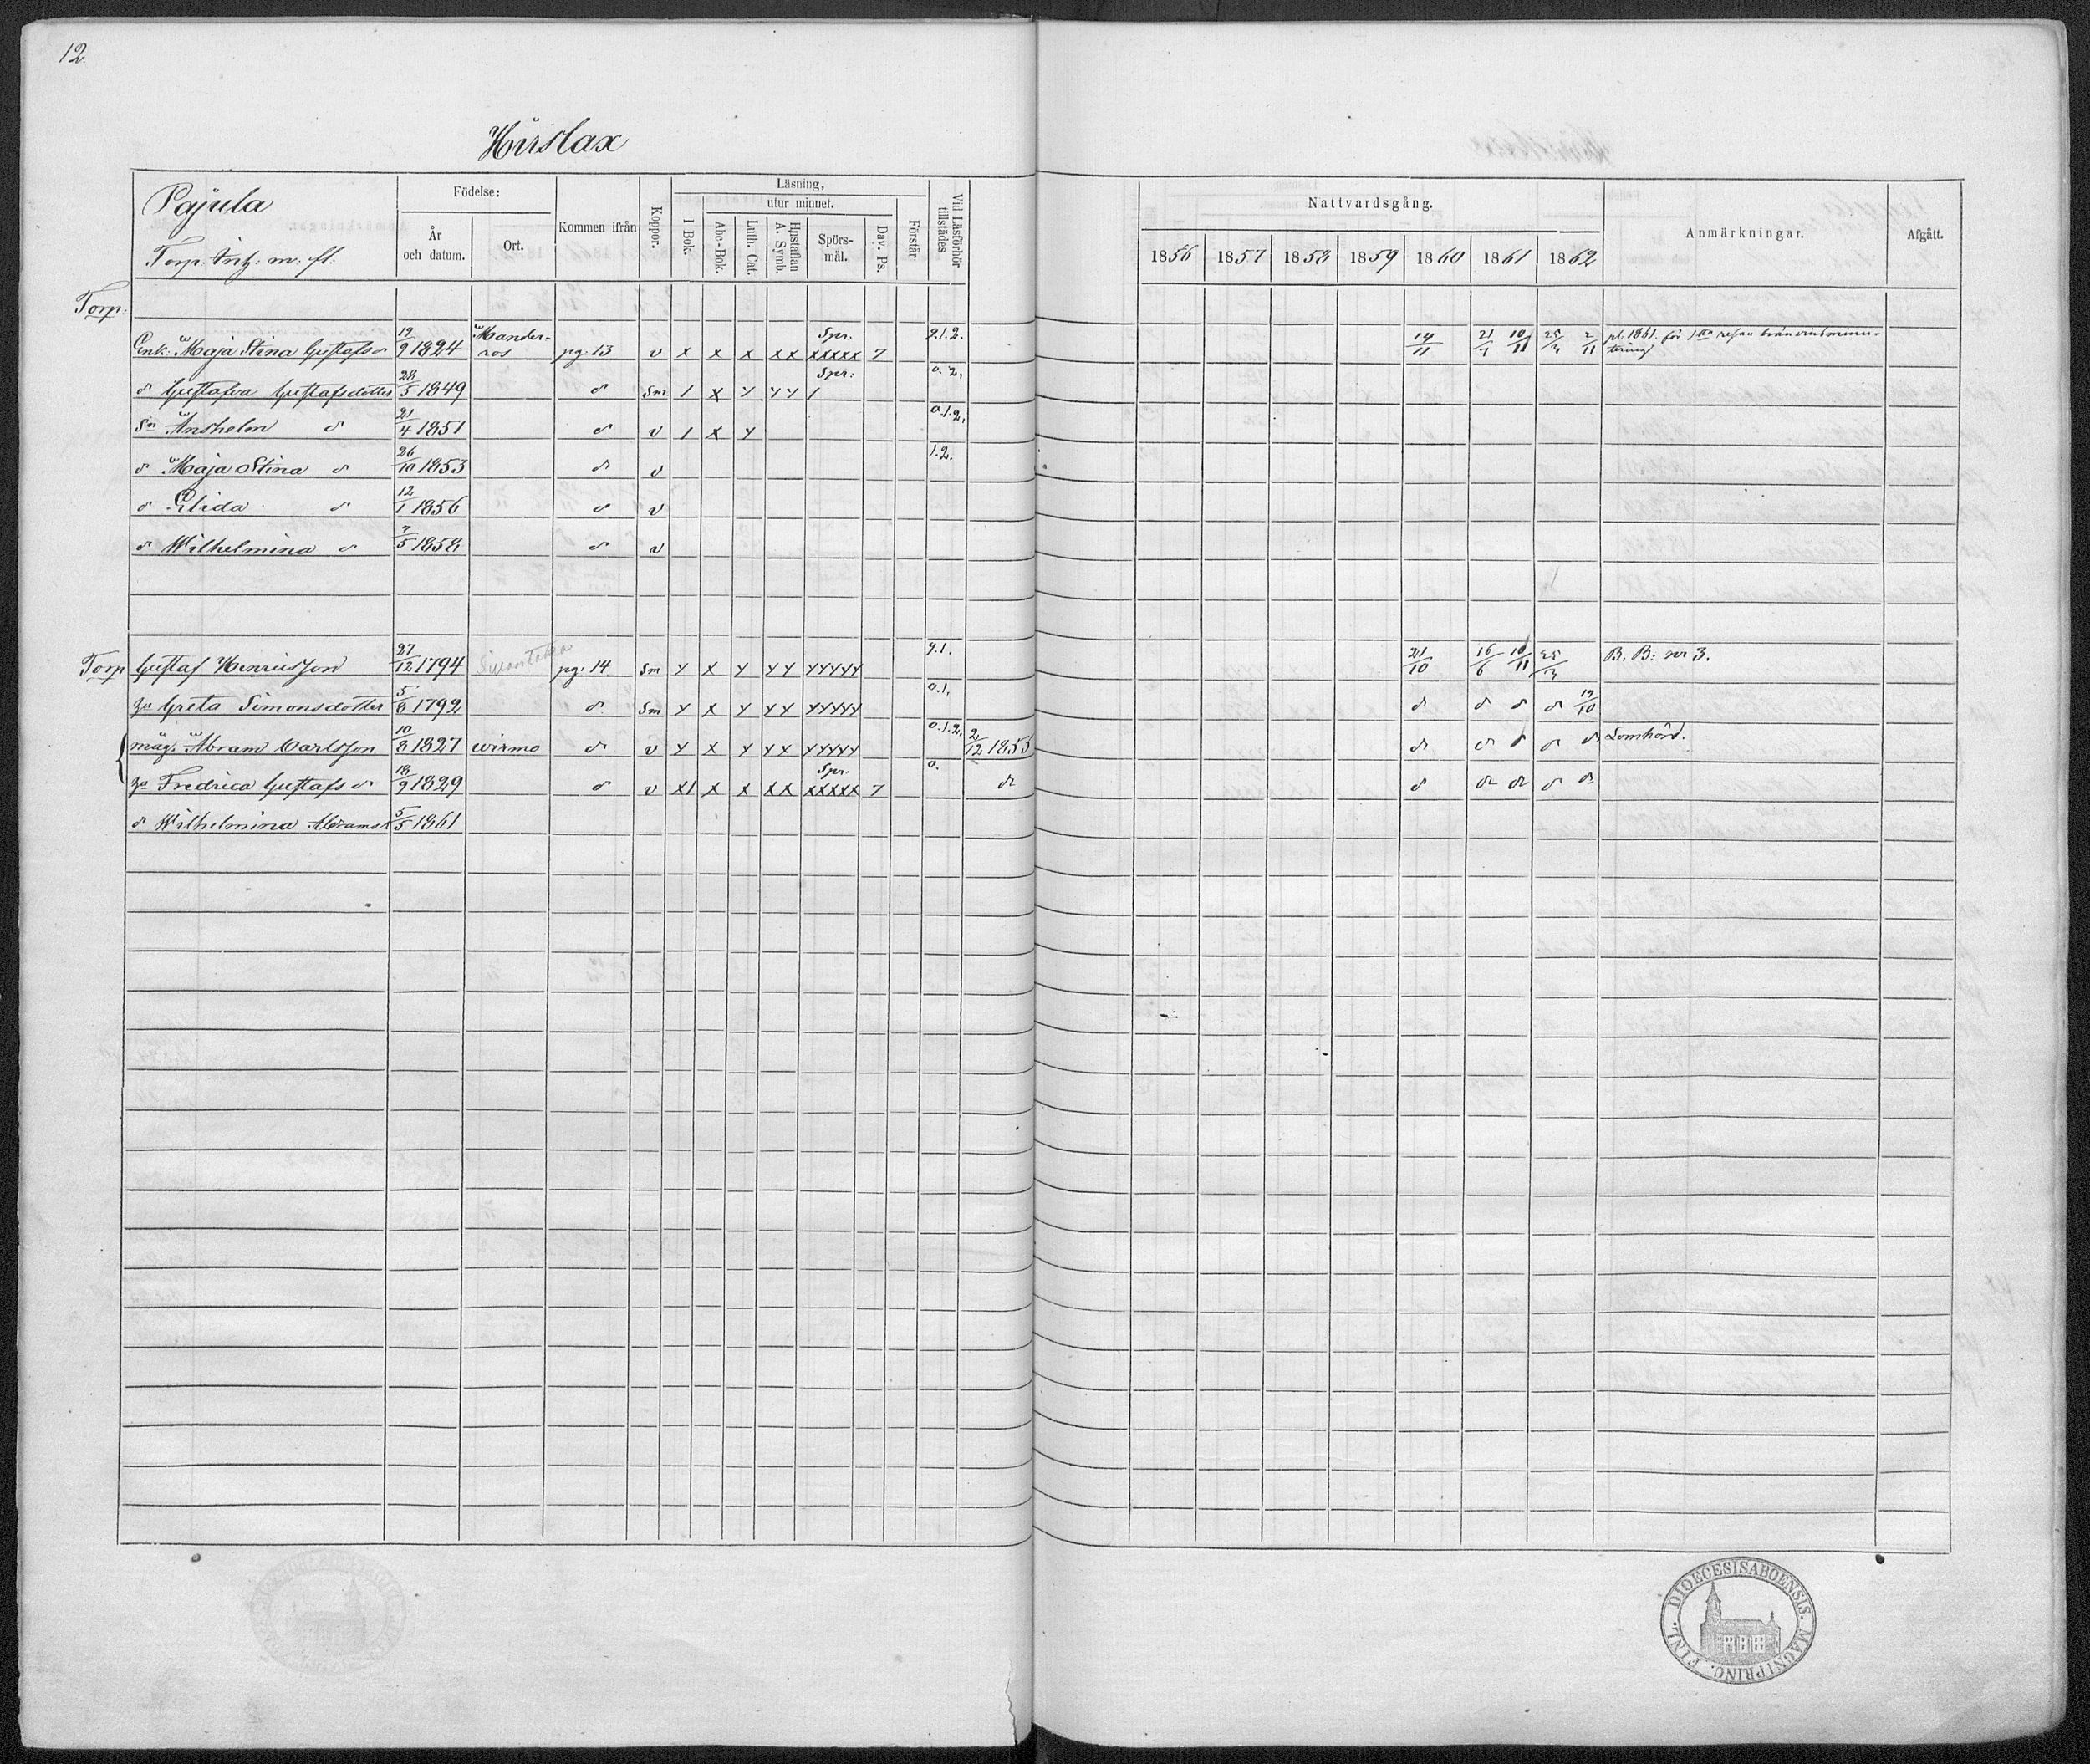 12.
Hirslax
Pajula
Torp. Inh: m. fl.
Födelse:
År och datum.
Ort.
Kommen ifrån
Koppor.
Läsning,
I Bok.
utur minnet.
Abc-Bok.
Luth. Cat.
Hustaflan A. Symb.
Spörsmål.
Dav. Ps.
Förstår
Vid Läsförhör tillstädes
Nattvardsgång.
1856 1857 1858 1859 1860 1861 1862
Anmärkningar.
Afgått.
Torp:
Enk. Maja Stina Gustafs d 19/9 1824 pg: 13 v x x x xx Spr. xxxxx 7 2.1.2. 14/11 10/11 2/11 pl. 1861. för 1sta resan
d Gustafva Gustafsdotter 28/5 1849 d Sm 1 x y yy Spr: 1 0.2.
Sn Anshelm d 21/4 1851 d v 1 x y 0.1.2.
d Maja Stina d 26/10 1853 d v 1.2.
d Elida d 12/1 1856 d v
d Wilhelmina d 7/5 1858 d v
Torp Gustaf Henricsson 27/12 1794 pg: 14 Sm y x y yy yyyyy 9.1. 21/10 16/6 10/11 B. B: nr 3.
hu Greta Simonsdotter 5/8 1792 d Sm y x y yy yyyyy 0.1. d d d d 19/10
måg. Abram Carlsson 10/8 1827 Wirmo d v y x y yx yyyyy 0.1.2. 2/12 1855 d d d d Lomhörd.
hu Fredrica Gustafs d 18/9 1829 d v x1 x x xx Spr. xxxxx 7 0. d d d d d d
d Wilhelmina Abrams d 5/5 1861
DIOECESIS ABOENSIS. MAGNI PRINC. FINL.